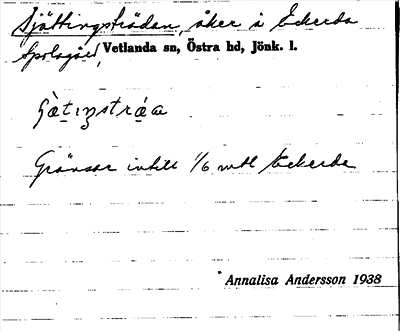 Sjättingsträdan, åker å Eckerda
Spelagård, Vetlanda sn, Östra hd, Jönk. l.
Gränsar intill 1/6 mtl Eckerda
Annalisa Andersson 1938